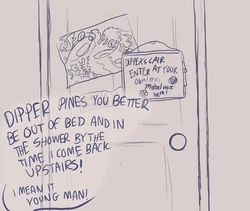 DIPPER'S LAIR
ENTER AT YOUR
OWN
DIPPER PINES YOU BETTER
BE OUT OF BED AND IN
THE SHOWER BY THE
TIME I COME BACK
UPSTAIRS!
I MEAN IT
YOUNG MAN!